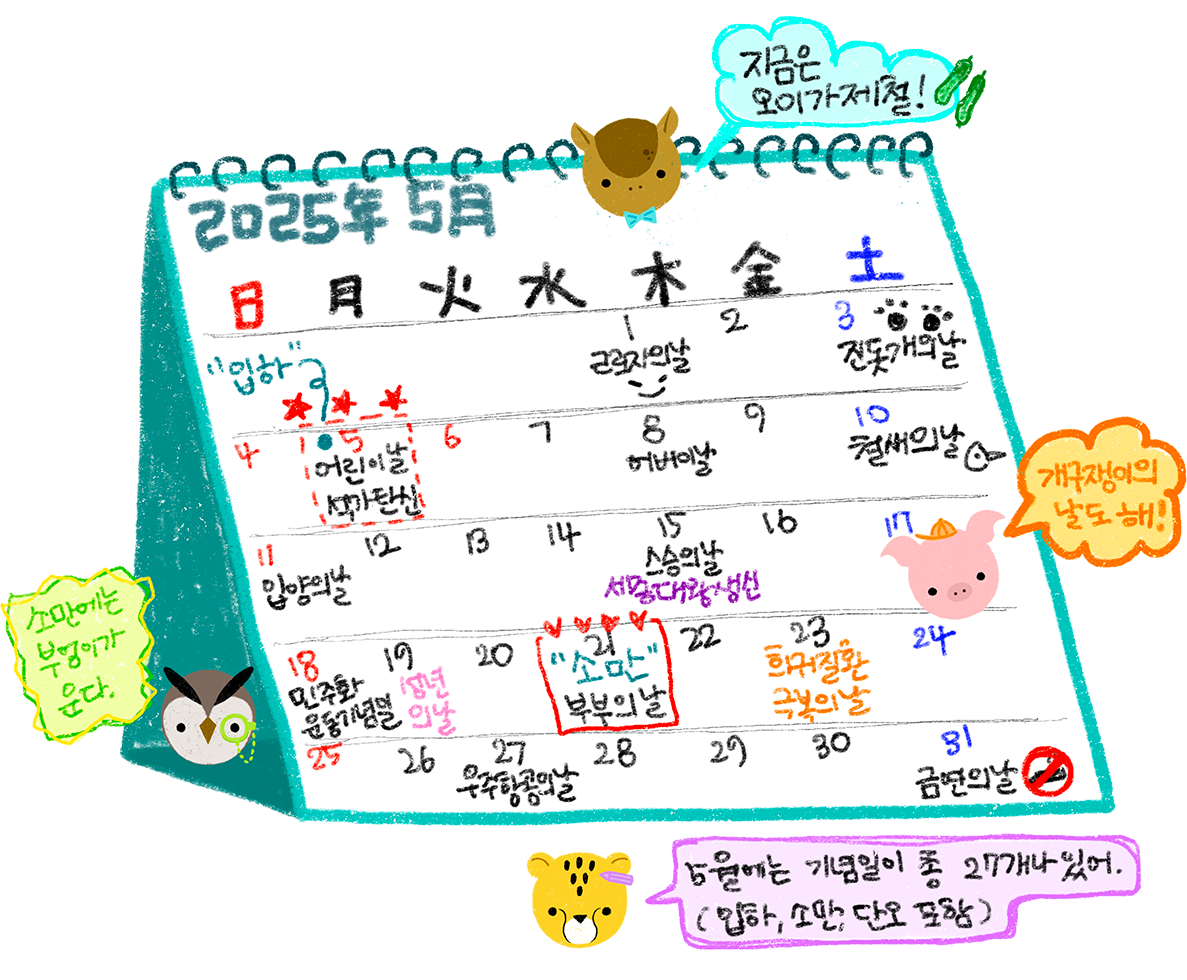 지금은
오이가 제철!
2025年 5月
日 月 火 水 木 金 土
1 2 3
근로자의 날 진돗개의 날
"입하"
4 5 6 7 8 9 10
어린이날 어버이날 철새의 날
석가탄신
개구쟁이의
날도 해!
11 12 13 14 15 16 17
입양의 날 스승의 날
세종대왕 생신
소만에는
부엉이가
운다.
18 19 20 21 22 23 24
민주화 성년 "소만" 희귀질환
운동기념일 의 날 부부의 날 극복의 날
25 26 27 28 29 30 31
우주항공의 날 금연의 날
5월에는 기념일이 총 27개나 있어.
(입하, 소만, 단오 포함)